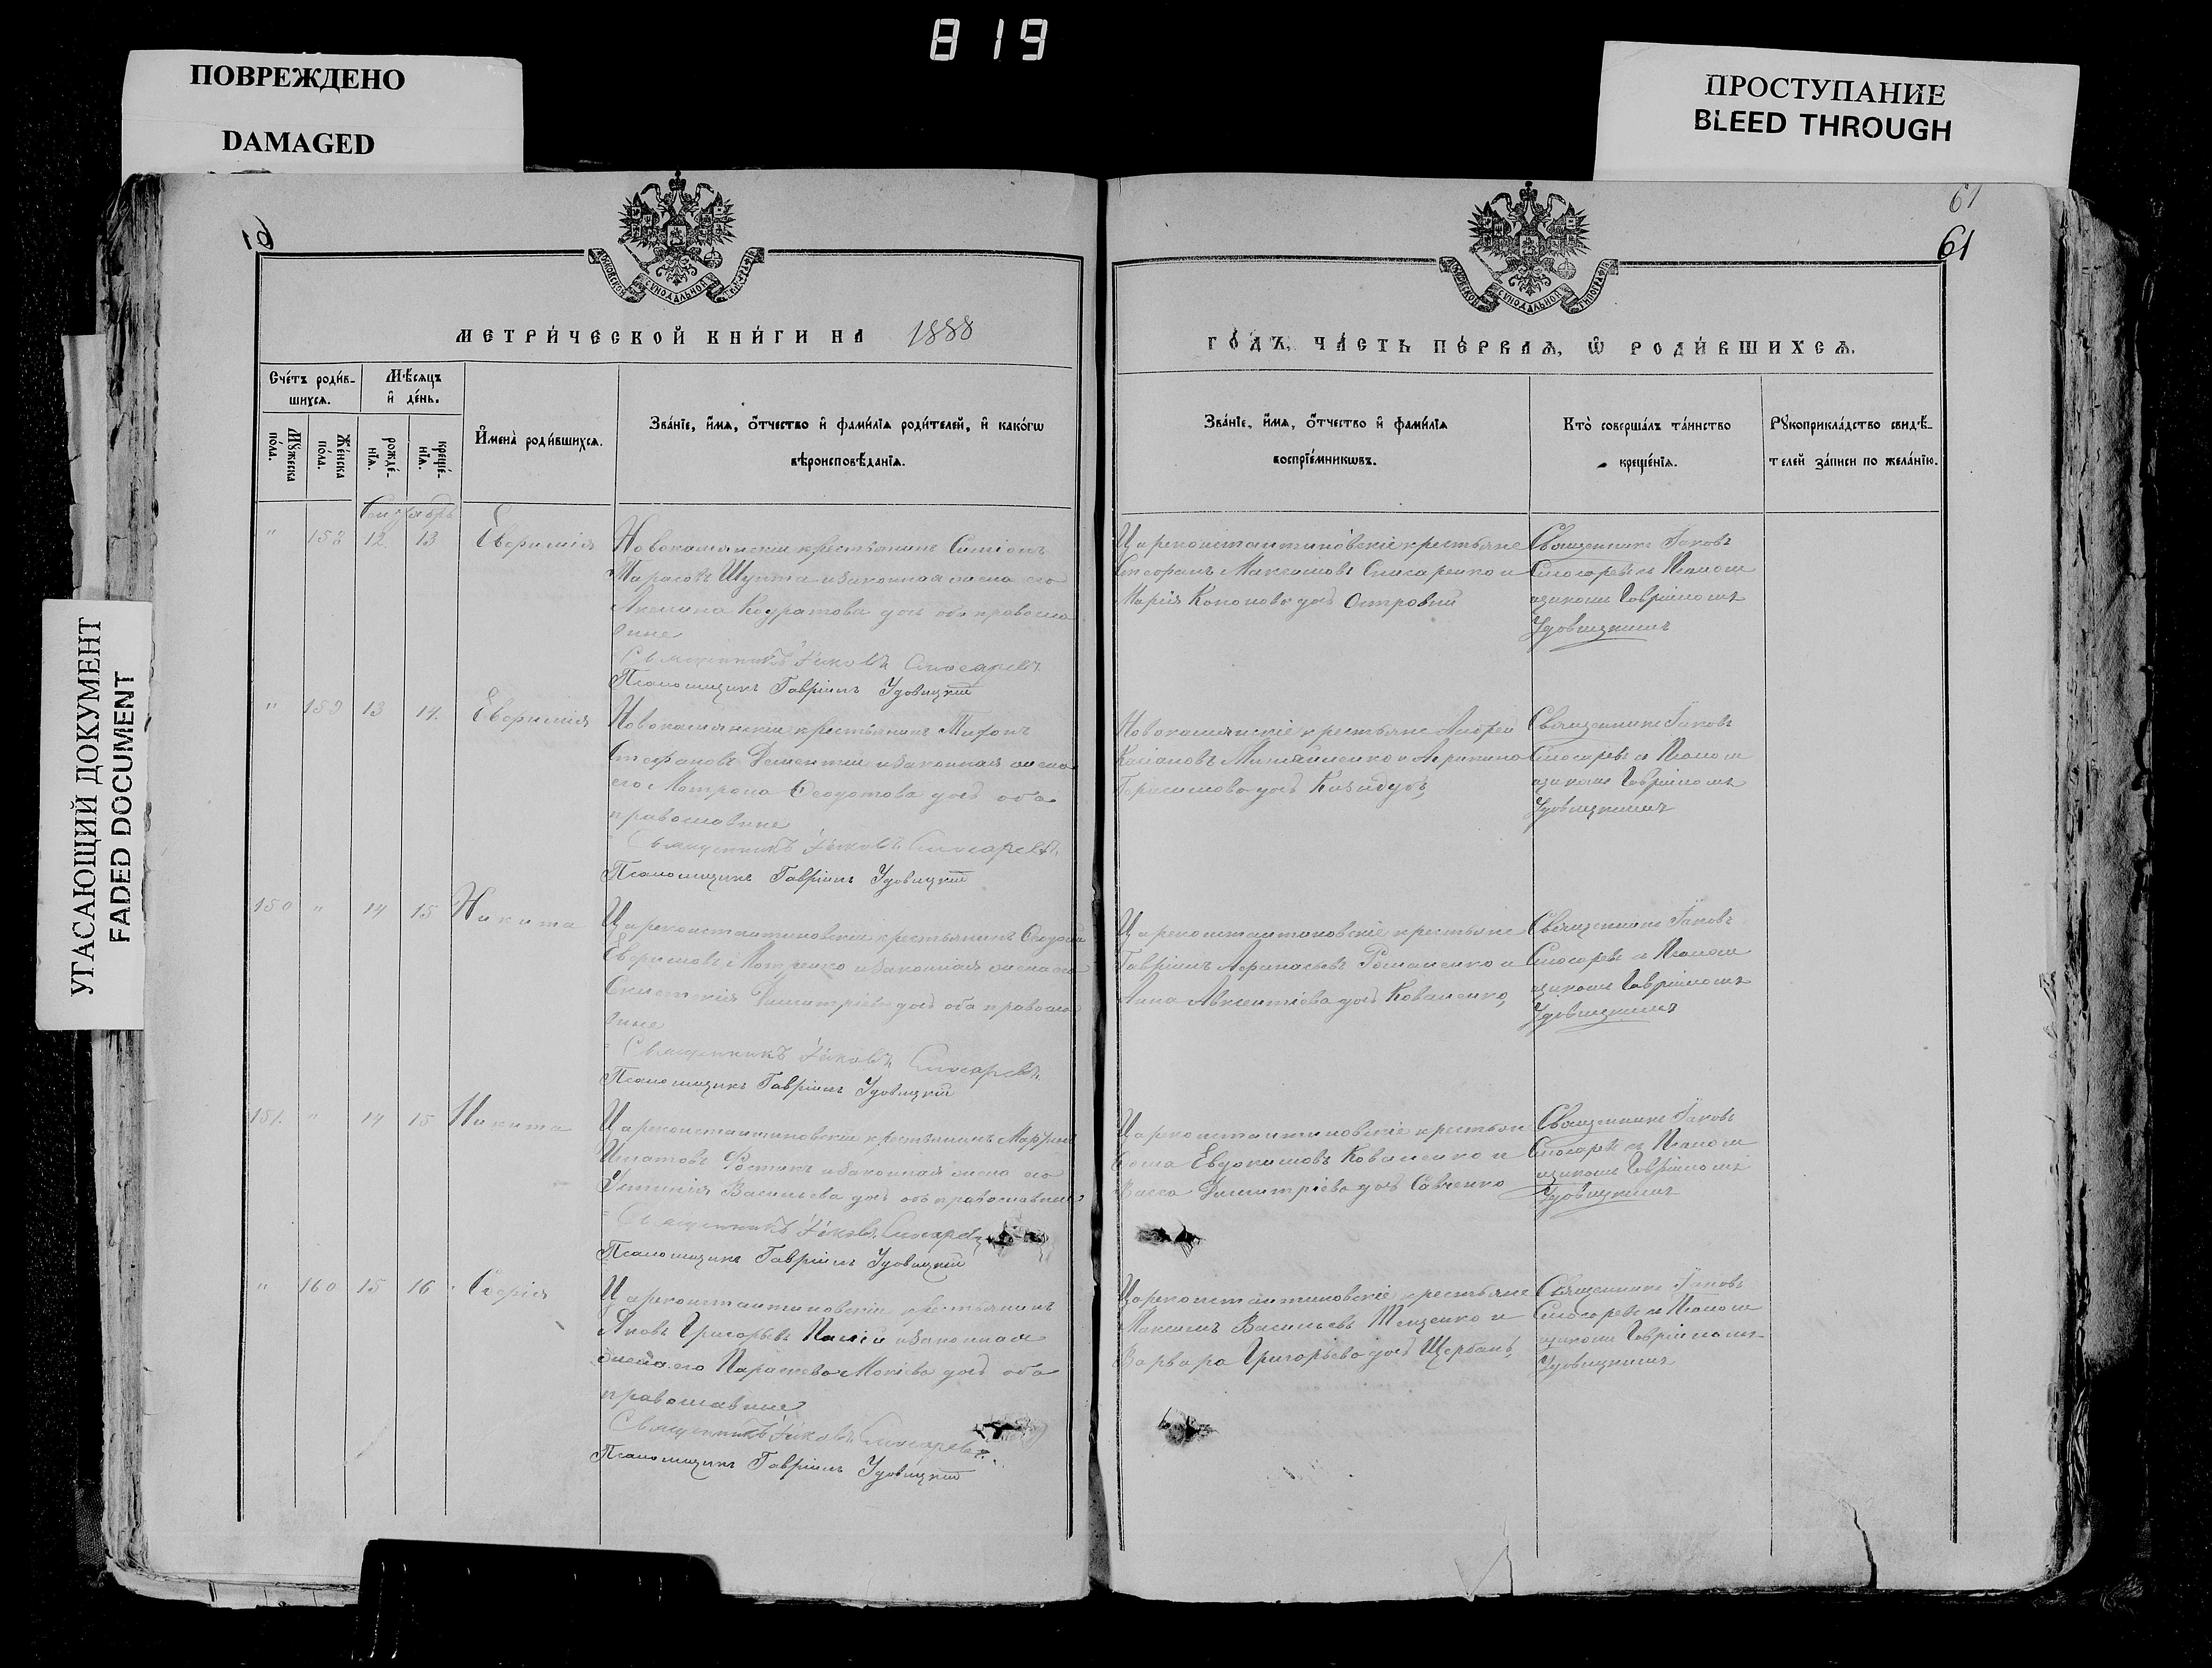 819
ПОВРЕЖДЕНО
DAMAGED
ПРОСТУПАНИЕ
BLEED THROUGH
УГАСАЮЩИЙ ДОКУМЕНТ
FADED DOCUMENT
61
61
61
МОСКОВСКОЙ СѴНОДАЛЬНОЙ ТИПОГРАФІИ
МОСКОВСКОЙ СѴНОДАЛЬНОЙ ТИПОГРАФІИ
МЕТРИ́ЧЕСКОЙ КНИ́ГИ НА 1888
ГО́ДЪ, ЧА́СТЬ ПЕ́РВАѦ, Ѡ РОДИ́ВШИХСѦ.
Сче́тъ роди́в-
шихсѧ.
Мѣ́сѧцъ
и҆ де́нь.
Мꙋ́жеска
по́ла.
Же́нска
по́ла.
рожде́-
нїѧ.
креще́-
нїѧ.
И҆мена̀ роди́вшихсѧ.
Зва́нїе, и҆́мѧ, ѻ҆́тчество и҆ фами́лїѧ роди́телей, и҆ како́гѡ
вѣроисповѣ́данїѧ.
Зва́нїе, и҆́мѧ, ѻ҆́тчество и҆ фами́лїѧ
воспрїе́мникѡвъ.
Кто̀ соверша́лъ та́инство
креще́нїѧ.
Рꙋкоприкла́дство свидѣ́-
телей за́писи по жела́нїю.
Сентябрь
" 158 12 13 Евфимія
Новокаменскій крестьянинъ Симіонъ
Тарасовъ Шупта и законная жена его
Акилина Кодратова доч оба правосла
вные
Священникъ Іаковъ Слюсаревъ
Псаломщикъ Гавріилъ Удовицкій
Цареконстантиновскіе крестьяне
Стефанъ Максимовъ Слисаренко и
Марія Кононова доч Островий
Священникъ Іаковъ
Слюсаревъ съ Псалом
щикомъ Гавріиломъ
Удовицкимъ
" 159 13 14. Евфимія
Новокаменскій крестьянинъ
Стефановъ Дементій и законная жена
его Мотрона Феодотова доч оба
православные
Священникъ Іаковъ Слюсаревъ
Псаломщикъ Гавріилъ Удовицкій
Новокаменскіе крестьяне Андрей
Касіановъ и Агрипина
Герасимова доч Кизидубъ
Священникъ Іаковъ
Слюсаревъ съ Псалом
щикомъ Гавріиломъ
Удовицкимъ
150 " 14 15 Никита
Цареконстантиновскій крестьянинъ Феодосій
Евфимовъ Мотренко и законная жена его
Димитріева доч оба правосла
вные
Священникъ Іаковъ Слюсаревъ
Псаломщикъ Гавріилъ Удовицкій
Цареконстантиновскіе крестьяне
Гавріилъ Афанасьевъ Романенко и
Анна Авксентіева доч Коваленко
Священникъ Іаковъ
Слюсаревъ съ Псалом
щикомъ Гавріиломъ
Удовицкимъ
151. " 14 15 Никита
Цареконстантиновскій крестьянинъ
Игнатовъ Ростикъ и законная жена его
Устинія Васильева доч оба православные
Священникъ Іаковъ Слюсаревъ
Псаломщикъ Гавріилъ Удовицкій
Цареконстантиновскіе крестьяне
Фома Евдокимовъ Коваленко и
Васса Димитріева доч Савченко
Священникъ Іаковъ
Слюсаревъ съ Псалом
щикомъ Гавріиломъ
Удовицкимъ
" 160 15 16 Софія
Цареконстантиновскій крестьянинъ
Яковъ Григорьевъ Палій и законная
жена его Параскева Мокіева доч оба
православные
Священникъ Іаковъ Слюсаревъ
Псаломщикъ Гавріилъ Удовицкій
Цареконстантиновскіе крестьяне
Максимъ Васильевъ Тещенко и
Варвара Григорьева доч Щербань
Священникъ Іаковъ
Слюсаревъ съ Псалом
щикомъ Гавріиломъ
Удовицкимъ